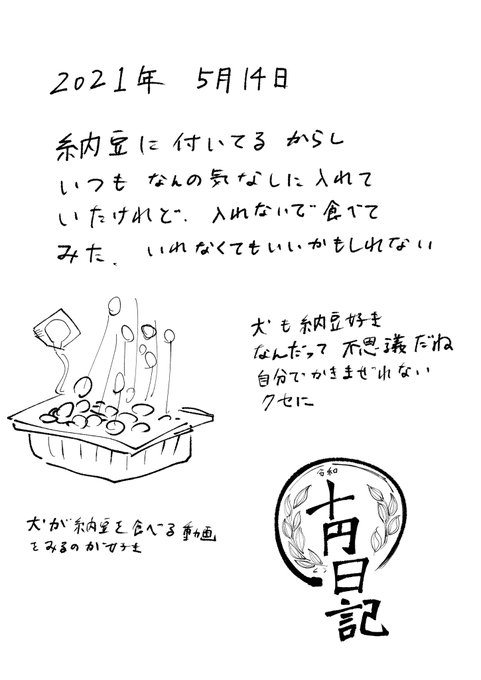 2021年 5月14日
納豆に付いてる からし
いつも なんの気なしに入れて
いたけれど、入れないで食べて
みた. いれなくてもいいかもしれない
犬も納豆好き
なんだって 不思議だね
自分でかきまぜれない
クセに
犬が納豆を食べる動画
をみるのが好き
令和
十円日記